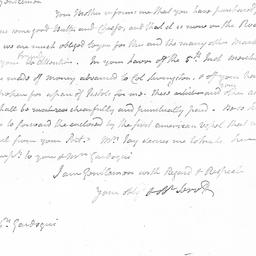 Gentlemen
Your Brother informs me that you have purchased
me some good and and that it is now on the Road
we are much obliged to you for this and the many other Marks
your Attention. In your favor of the 5th Inst. mention
is made of money advanced to Col Livingston & of your having
for a pair of Pistols for me. These articles and other
shall be cheerfully and punctually paid. Be so
to forward the enclosed by the first american Vessel that
from your Port. Mrs. Jay desires me to make her
to you & Mrs Gardoqui
I am Gentlemen with Regard & Respect
Your obt & hble Servt
Gardoqui